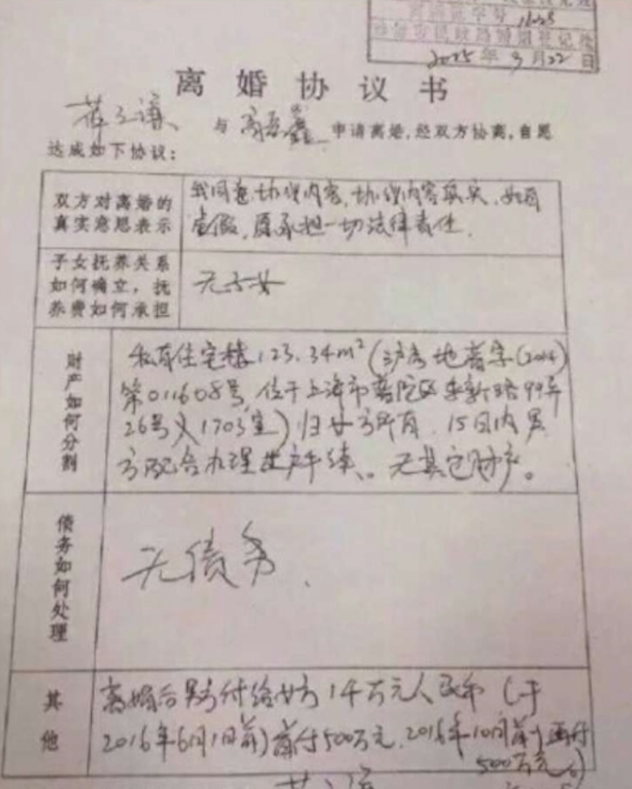 2015年9月22日
离婚协议书
薛之谦 与 高磊鑫 申请离婚,经双方协商,自愿
达成如下协议:
双方对离婚的
真实意思表示
我同意协议内容,协议内容真实,如有
虚假,愿承担一切法律责任.
子女抚养关系
如何确立,抚
养费如何承担
无子女
财产如何分割
私有住宅楼123.34m²(沪房地普字(2014)
第011608号,位于上海市普陀区 99弄
26号 1703室)归女方所有. 15日内男
方配合办理过户手续、无其它财产。
债务如何处理
无债务.
其他
离婚后男方付给女方1千万元人民币(于
2016年6月1日前)首付500万元.2016年10月前再付
500万元)